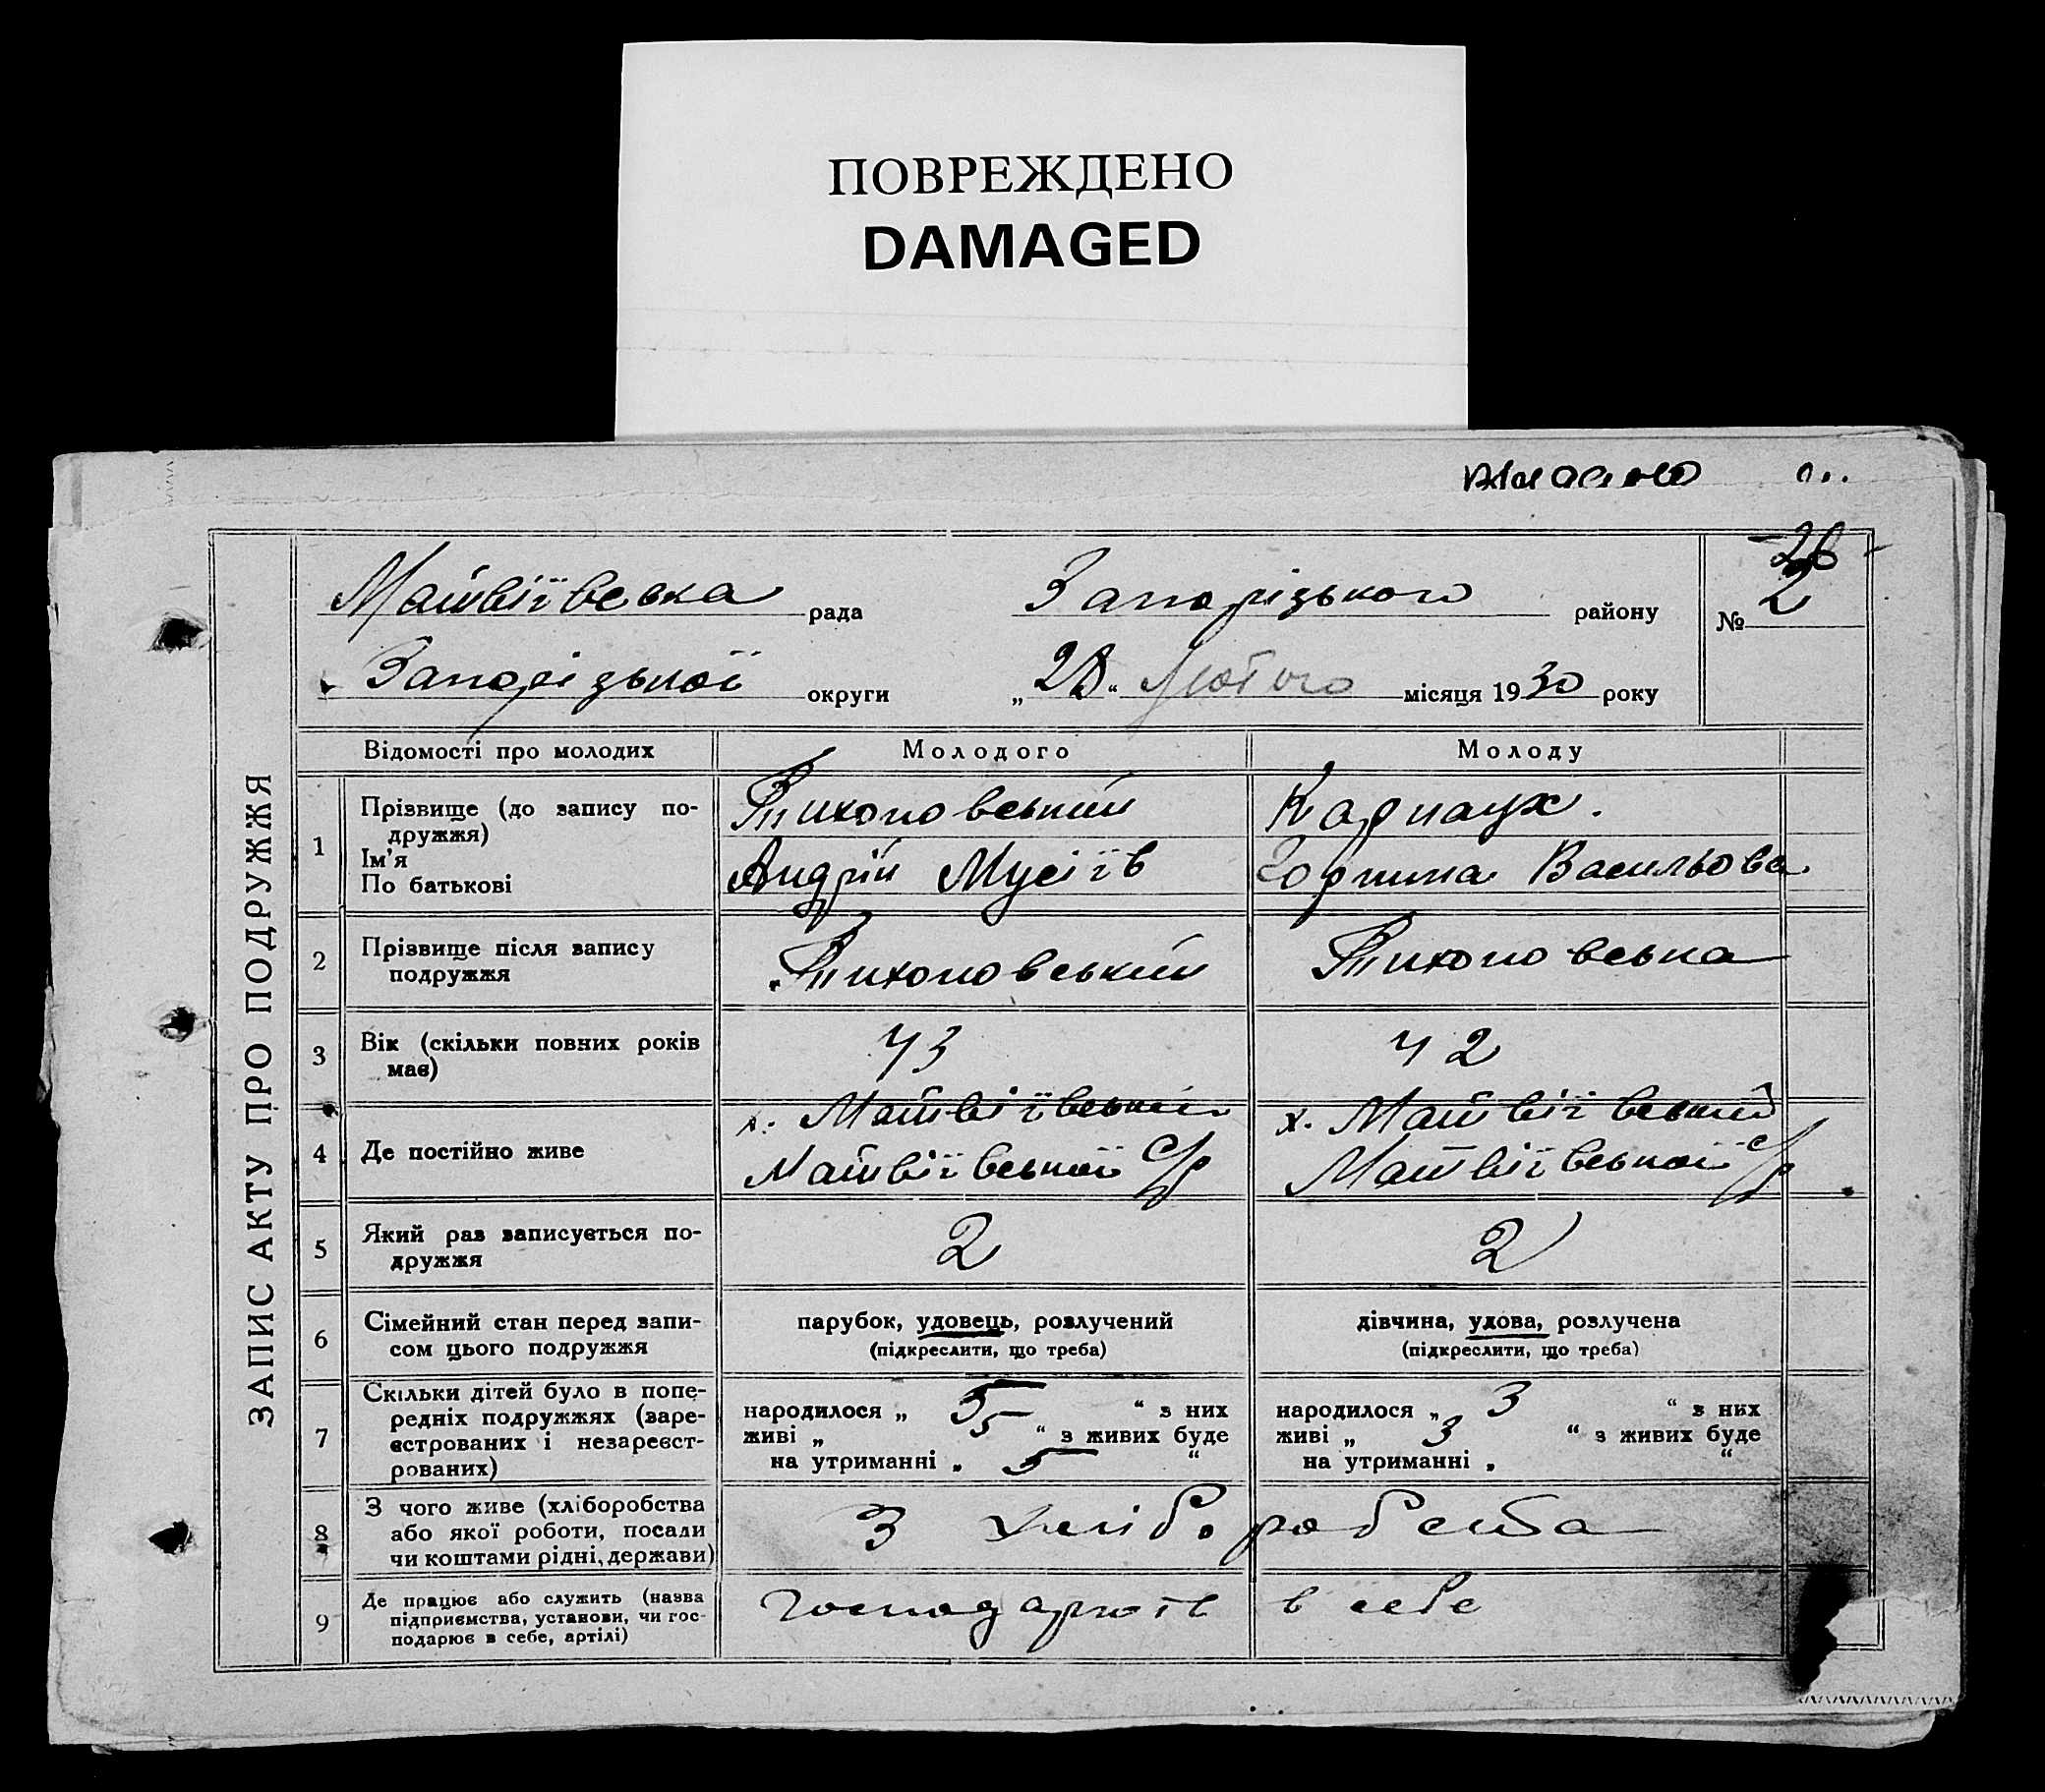 ПОВРЕЖДЕНО
DAMAGED
-28-
Матвіївська рада Запорізького району № 2
Запорізької округи „28“ Лютого місяця 1930 року
ЗАПИС АКТУ ПРО ПОДРУЖЖЯ
Відомості про молодих Молодого Молоду
1 Прізвище (до запису подружжя) Тихоновський Карнаух.
Ім'я
По батькові Андрій Мусіїв Горпина Васильова
2 Прізвище після запису подружжя Тихоновський Тихоновська
3 Вік (скільки повних років має) 43 42
4 Де постійно живе х. Матвіївський х. Матвіївський
Матвіївської с/р Матвіївської с/р
5 Який раз записується подружжя 2 2
6 Сімейний стан перед записом цього подружжя парубок, удовець, розлучений дівчина, удова, розлучена
(підкреслити, що треба) (підкреслити, що треба)
7 Скільки дітей було в попередніх подружжях (зареєстрованих і незареєстрованих) народилося „ 5 “ з них народилося „ 3 “ з них
живі „ 5 “ з живих буде живі „ 3 “ з живих буде
на утриманні „ 5 “ на утриманні „ “
8 З чого живе (хліборобства або якої роботи, посади чи коштами рідні, держави) З хліборобства
9 Де працює або служить (назва підприємства, установи, чи господарює в себе, артілі) Господарють в себе